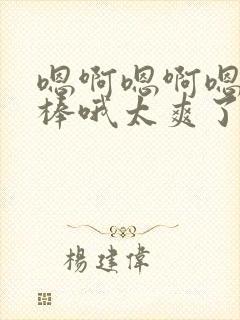 嗯啊嗯啊嗯
棒哦太爽了
杨建偉